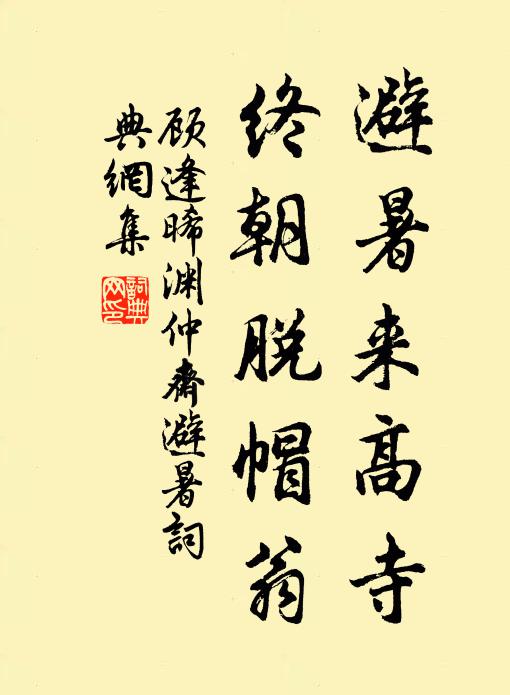 避暑来高寺
终朝脱帽翁
顾逢晞渊仲斋避暑词
典網集
詞典网印